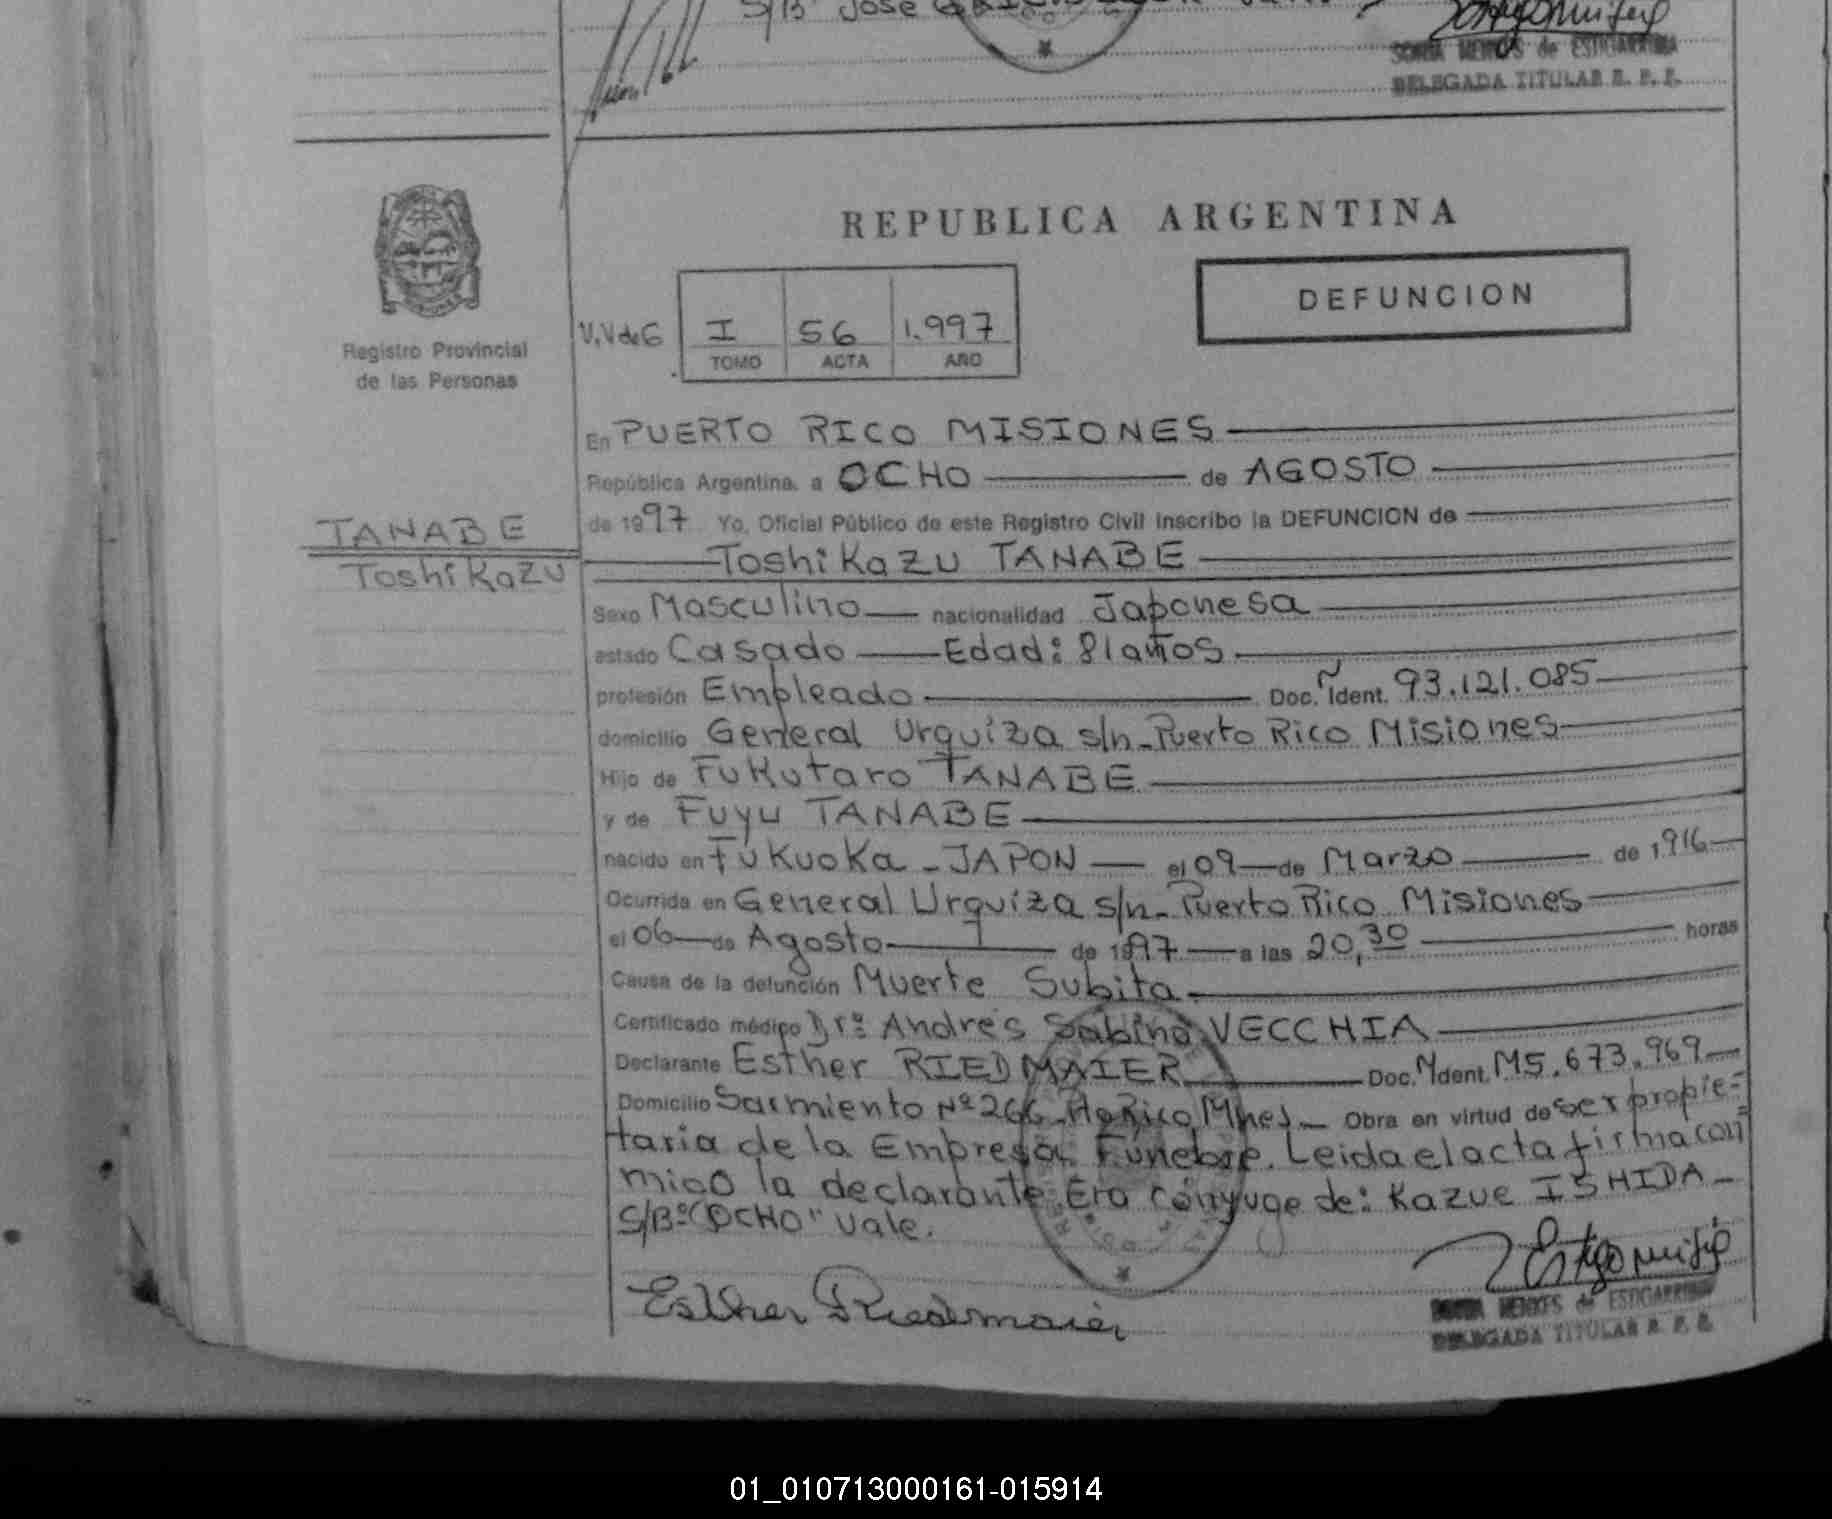 S/B José
SONIA MENXES de ESTIGARRIBIA
DELEGADA TITULAR R. P. P.
REPUBLICA ARGENTINA
DEFUNCION
V.V de G I 56 1.997
TOMO ACTA AÑO
Registro Provincial
de las Personas
En PUERTO RICO MISIONES
República Argentina, a OCHO de AGOSTO
de 1997 Yo, Oficial Público de este Registro Civil inscribo la DEFUNCION de
TANABE
Toshikazu TANABE
Toshikazu
Sexo Masculino nacionalidad Japonesa
estado Casado Edad: 81 años
profesión Empleado Doc. Ñ Ident. 93.121.085
domicilio General Urquiza s/n - Puerto Rico Misiones
Hijo de Fukutaro TANABE
y de Fuyu TANABE
nacido en Fukuoka - JAPON el 09 de Marzo de 1916
Ocurrida en General Urquiza s/n - Puerto Rico Misiones
el 06 de Agosto de 1997 a las 20,30 horas
Causa de la defunción Muerte Subita
Certificado médico Drº Andrés Sabino VECCHIA
Declarante Esther RIEDMAIER Doc. Ñ Ident. M5.673.969
Domicilio Sarmiento Nº 266 - Pto Rico Mnes. Obra en virtud de ser propie=
taria de la Empresa Funebre. Leida el acta firma con=
migo la declarante. Era cónyuge de: Kazue ISHIDA -
S/Bº "OCHO" Vale.
Esther Riedmaier
SONIA MENXES de ESTIGARRIBIA
DELEGADA TITULAR R. P. P.
01_010713000161-015914